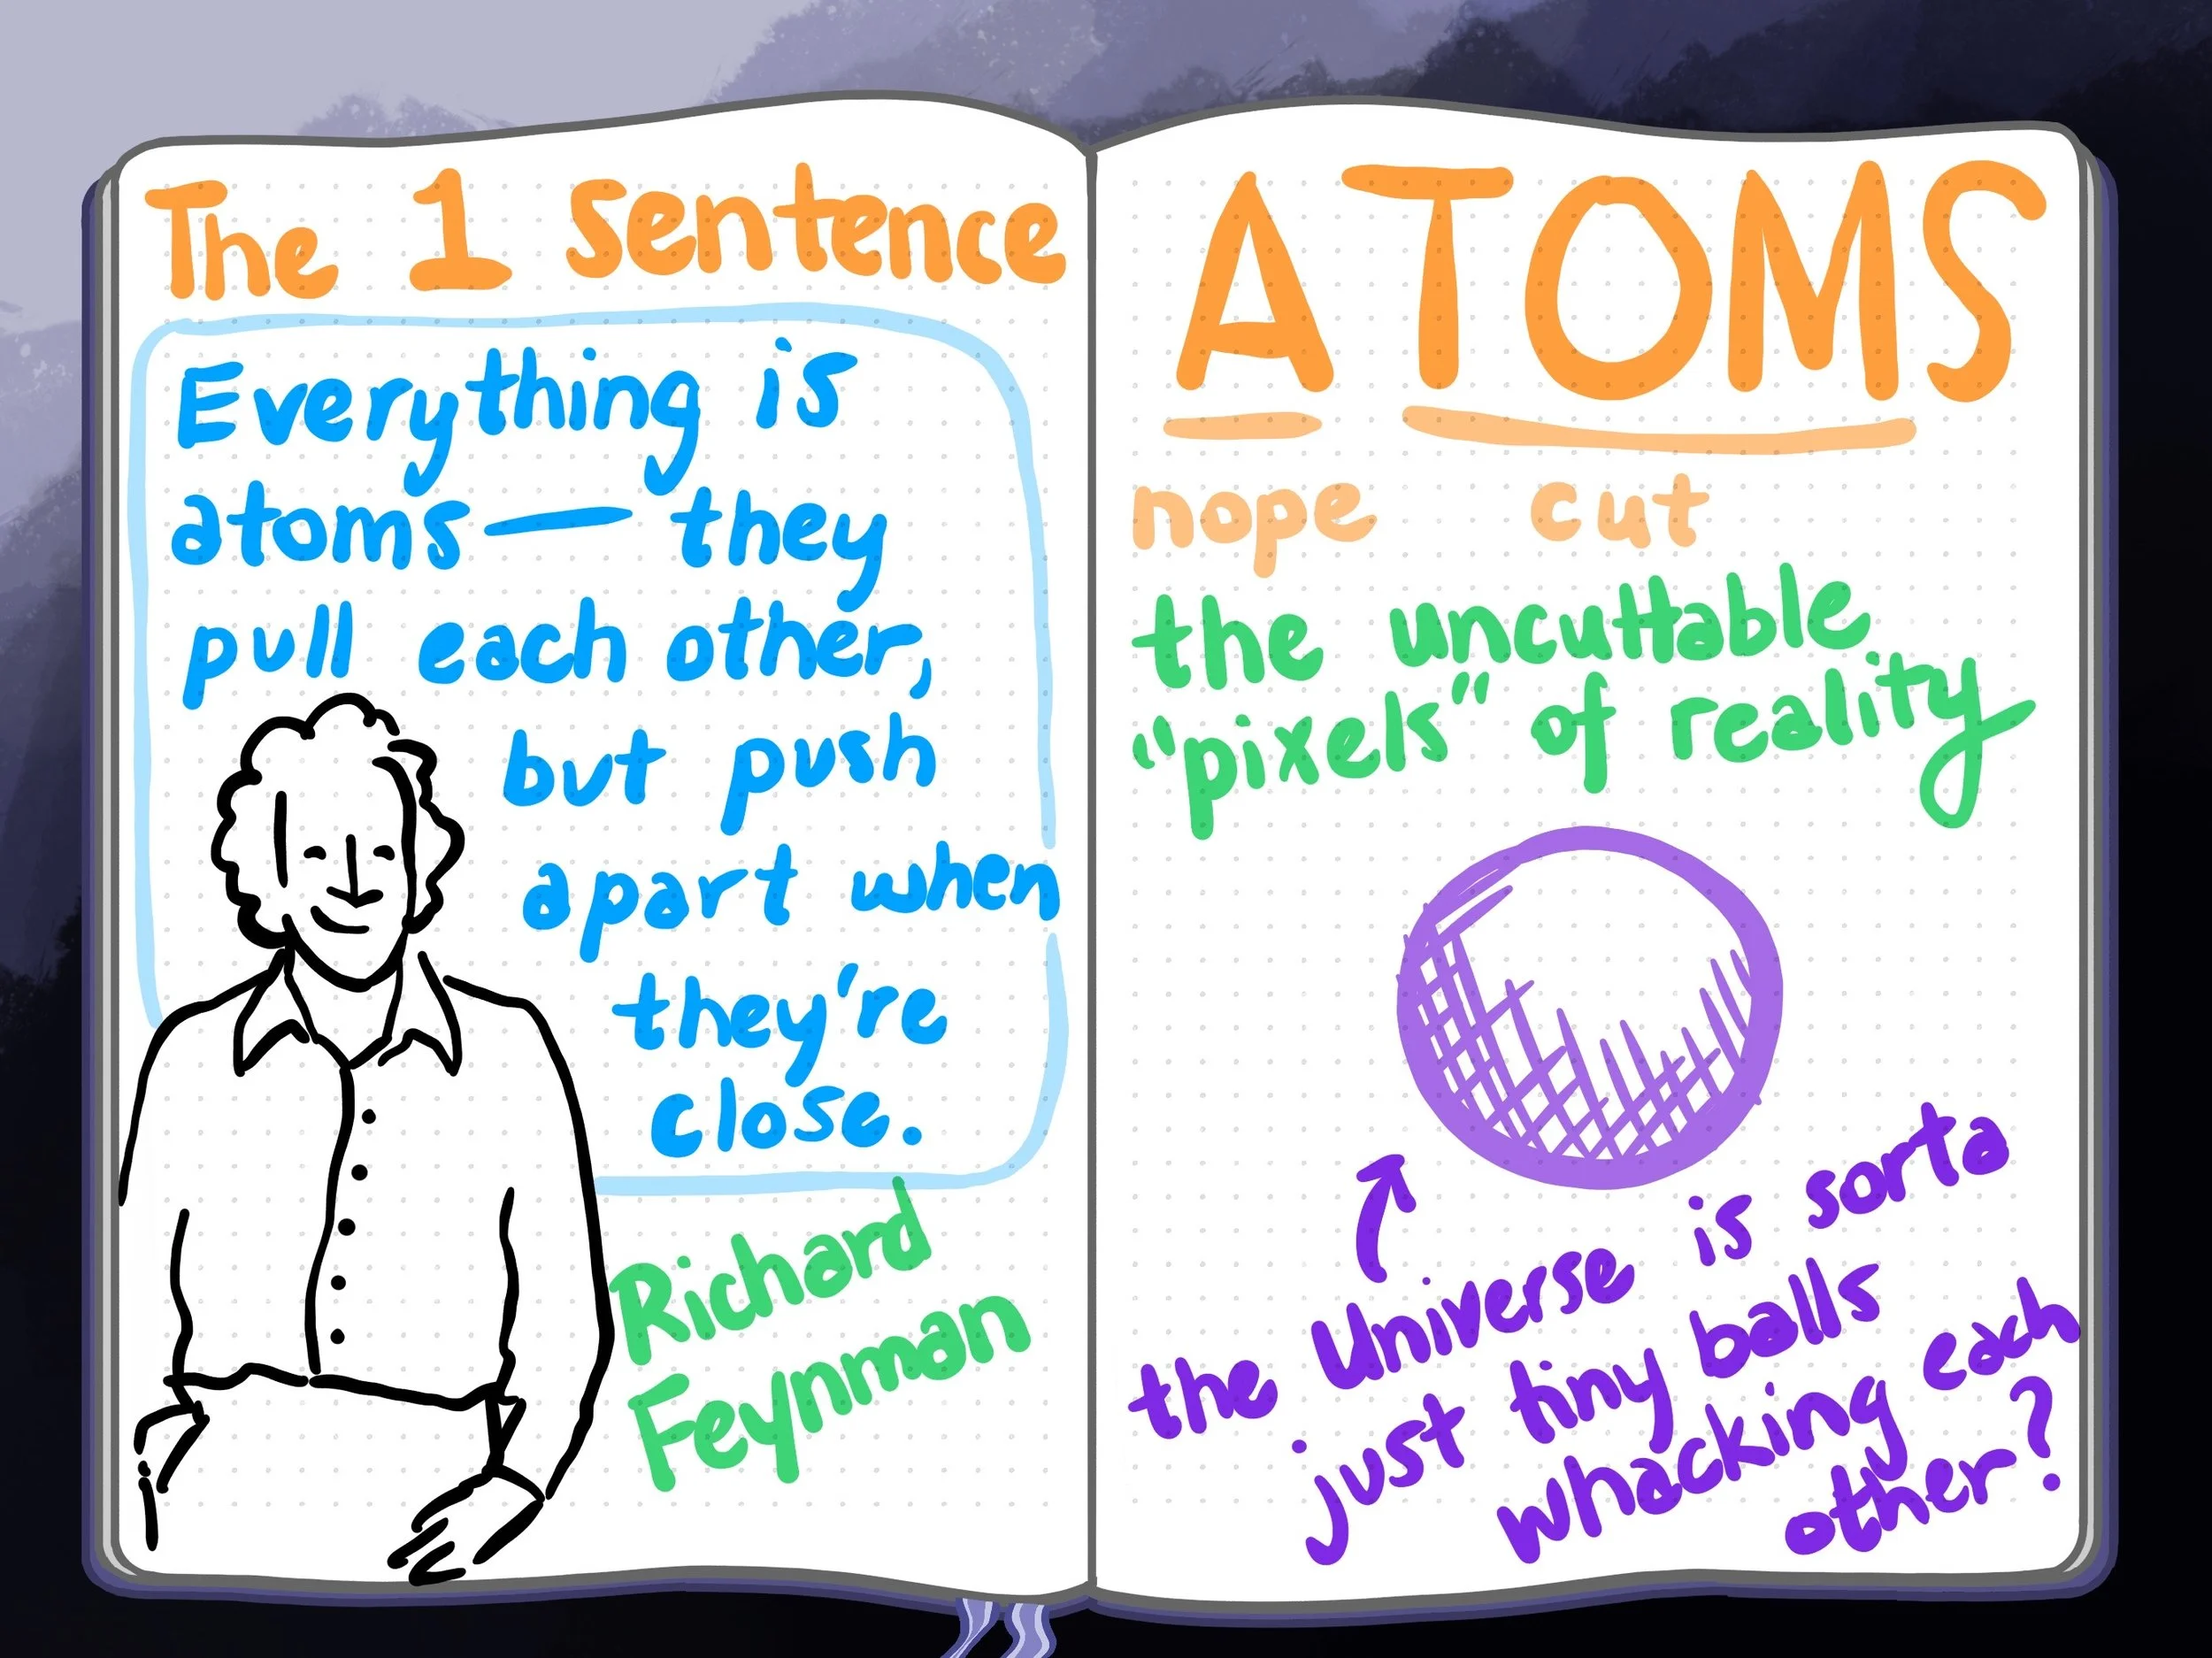 The 1 sentence
Everything is
atoms — they
pull each other,
but push
apart when
they're
close.
Richard
Feynman
ATOMS
nope cut
the uncuttable
"pixels" of reality
the Universe is sorta
just tiny balls
whacking each
other?